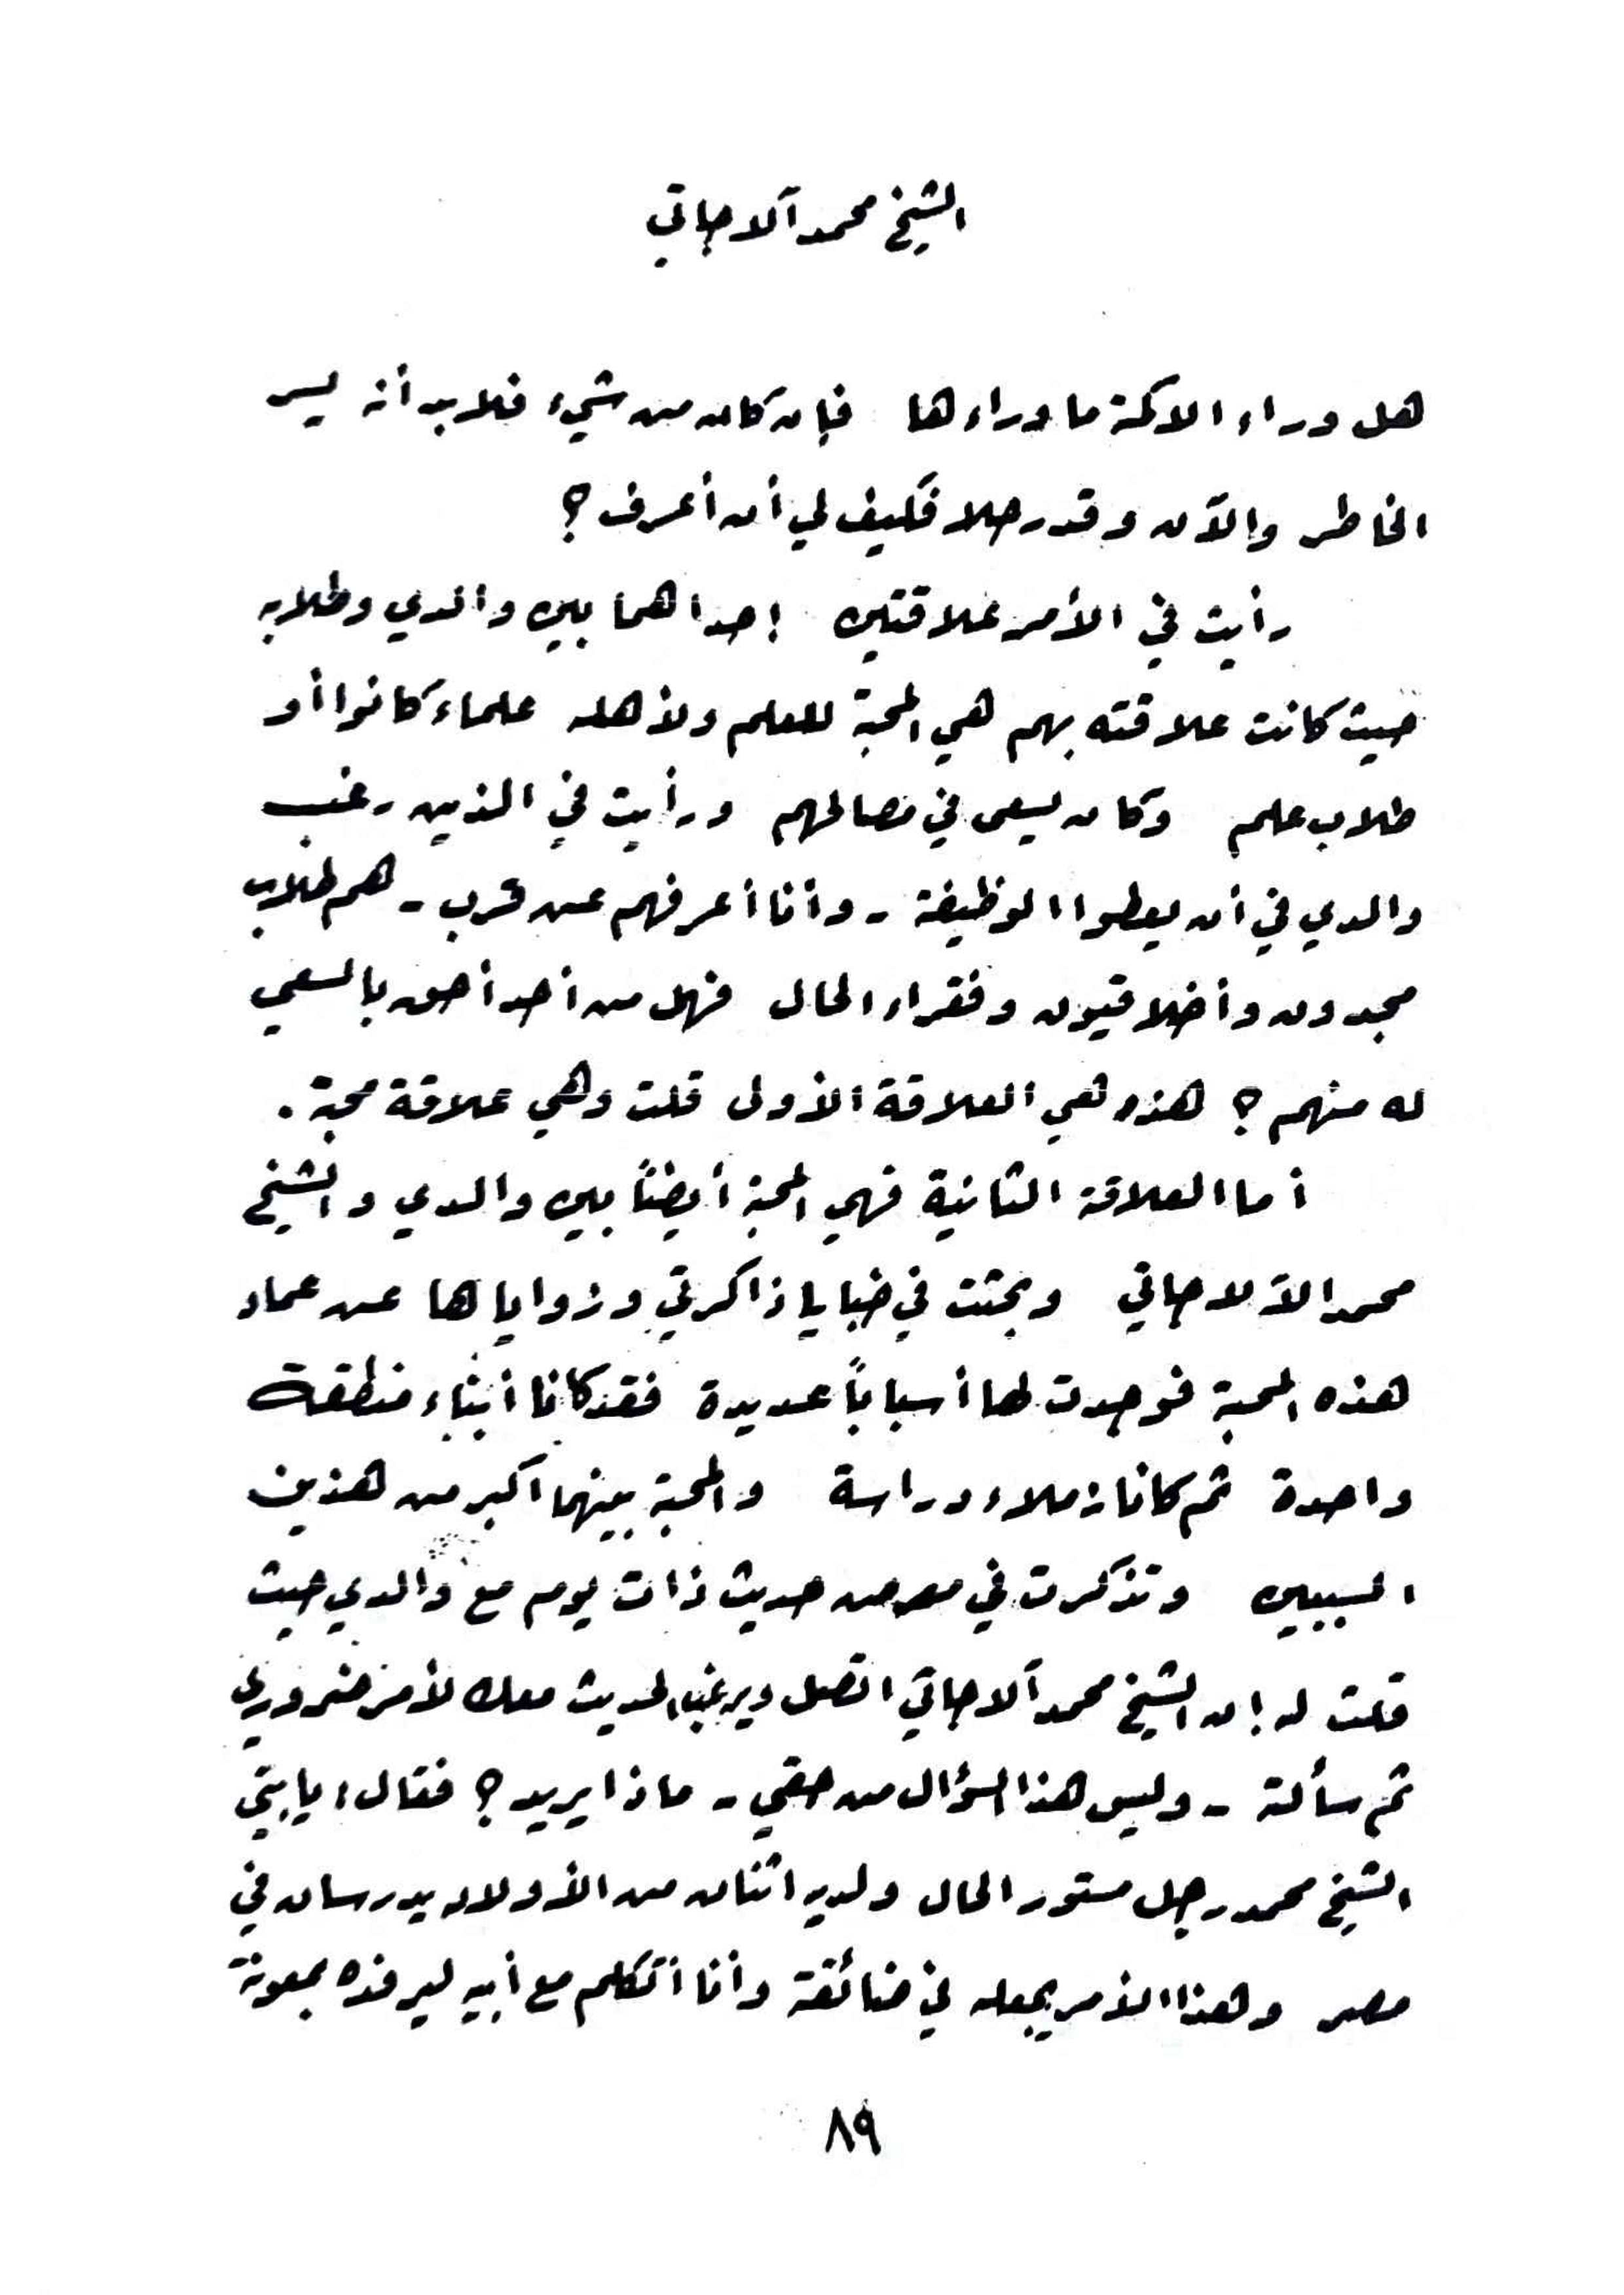 الشيخ محمد آلاجاتي
هل وراء الأكمة ما وراءها فإن كان من شيء فلابد أنه ليسر
الخاطر والآن وقد رحلا فكيف لي أن أعرف ؟
رأيت في الأمر علاقتين إحداهما بين والدي وطلابه
حيث كانت علاقته بهم هي المحبة للعلم ولأهله علماء كانوا أو
طلاب علم وكان يسعى في مصالحهم ورأيت في الذين رغب
والدي في أن يعطوا الوظيفة - وأنا أعرفهم عن قرب - هم طلاب
مجدون وأخلاقيون وفقراء الحال فهل من أحد أحق بالسعي
له منهم ؟ هذه هي العلاقة الأولى قلت وهي علاقة محبة .
أما العلاقة الثانية فهي المحبة أيضاً بين والدي والشيخ
محمد الآلاجاتي وبحثت في خبايا ذاكرتي وزواياها عن عماد
هذه المحبة فوجدت لها أسباباً عديدة فقد كانا أبناء منطقة
واحدة ثم كانا زملاء دراسة والمحبة بينهما أكبر من هذين
السببين وتذكرت في معرض حديث ذات يوم مع والدي حيث
قلت له إن الشيخ محمد آلاجاتي اتصل ويرغب الحديث معك لأمر ضروري
ثم سألته - وليس هذا السؤال من حقي - ماذا يريد ؟ فقال : يا بني
الشيخ محمد رجل مستور الحال ولديه اثنان من الأولاد يدرسان في
مصر وهذا الأمر يجعله في ضائقة وأنا أتكلم مع أبيه ليرفده بمعونة
٨٩